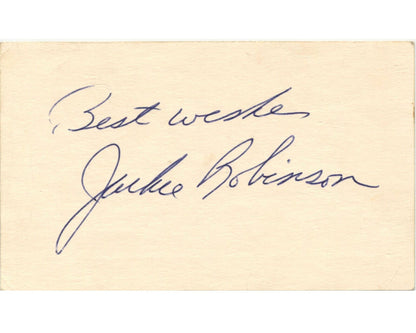 Best wishes
Jackie Robinson